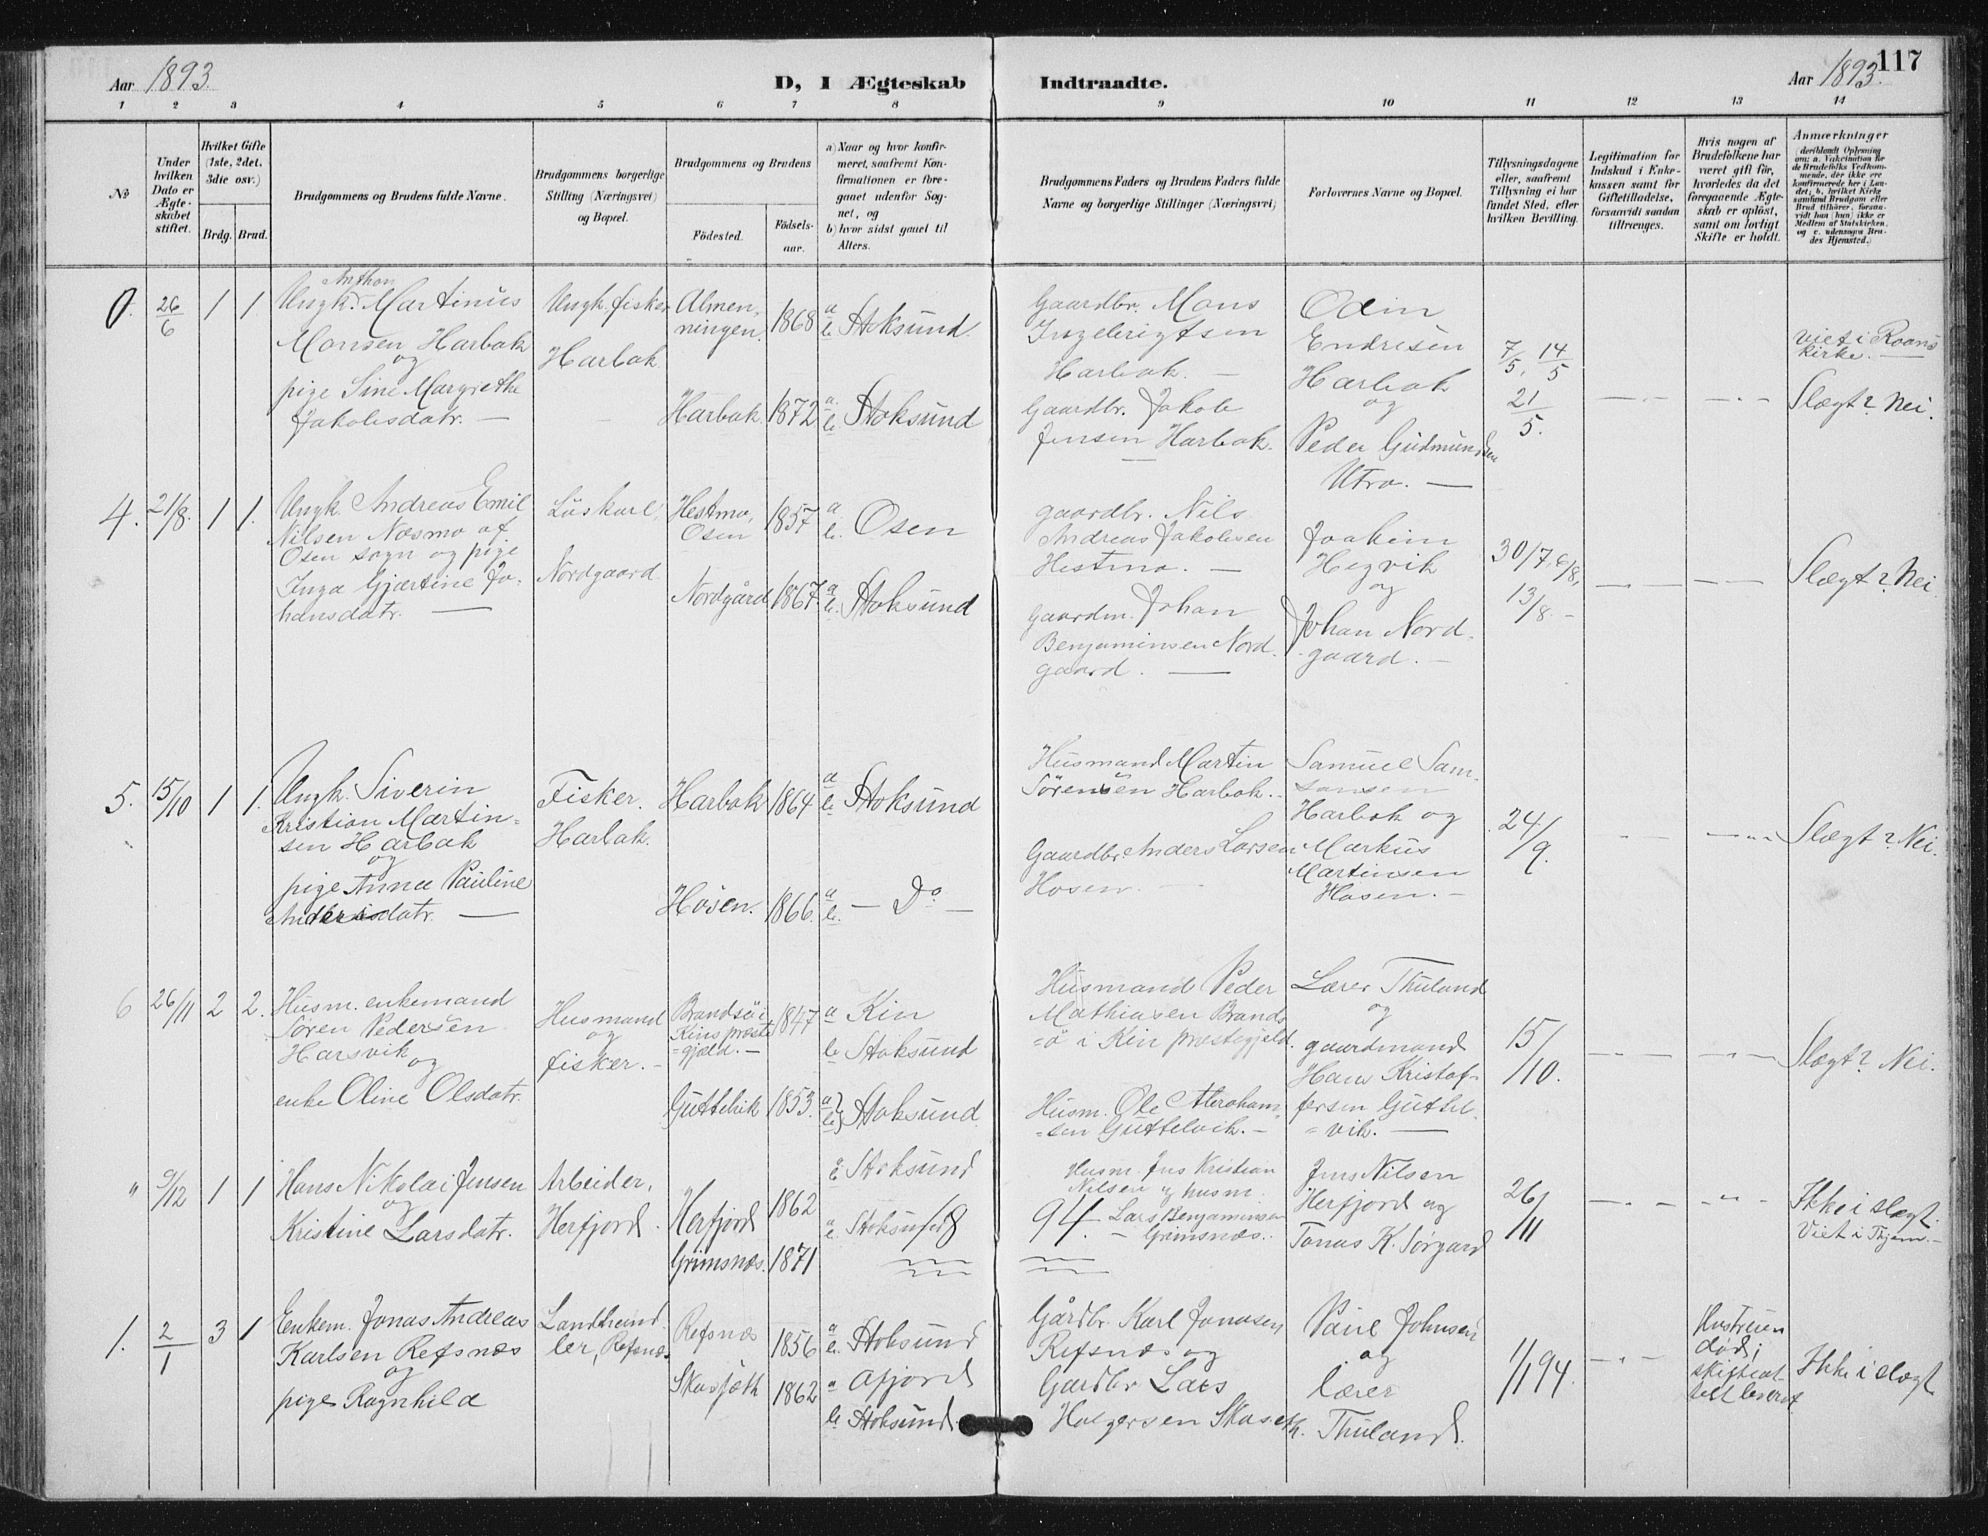 117
Aar 1893.
D, I Ægteskab Indtraadte.
Aar 1893.
1 2 3 4 5 6 7 8 9 10 11 12 13 14
No
Under hvilken Dato er Ægteskabet stiftet.
Hvilket Gifte (1ste, 2det, 3die osv.)
Brdg. Brud.
Brudgommens og Brudens fulde Navne.
Brudgommens borgerlige Stilling (Næringsvei) og Bopæl.
Brudgommens og Brudens
Fødested.
Fødselsaar.
a) Naar og hvor konfirmeret, saafremt Konfirmationen er foregaaet udenfor Sognet, og
b) hvor sidst gaaet til Alters.
Brudgommens Faders og Brudens Faders fulde Navne og borgerlige Stillinger (Næringsvei)
Forlovernes Navne og Bopæl.
Tillysningsdagene eller, saafremt Tillysning ei har fundet Sted, efter hvilken Bevilling.
Legitimation for Indskud i Enkekassen samt for Giftetilladelse, forsaavidt saadan tiltrænges.
Hvis nogen af Brudefolkene har været gift før, hvorledes da det foregaaende Ægteskab er opløst, samt om lovligt Skifte er holdt.
Anmærkninger
0. 26/6 1 1
Anthon
Ungk. Martinus
Monsen Harbak
og
pige Sine Margrethe
Jakobsdatr. —
Ungk. fisker
Harbak
Almen-
ningen.
1868
a
b. Stoksund
Harbak. 1872 a
b. Stoksund
Gaardbr. Mons
Ingebrigtsen
Harbak. —
Gaardbr. Jakob
Jensen Harbak.
Odin
Endresen
Harbak
og
Peder Gudmundsen
Utro. —
7/5, 14/5
21/5.
Viet i Roans
kirke. —
Slægt? Nei.
4. 21/8. 1 1.
Ungk. Andreas Emil
Nilsen Næsmo af
Osen sogn og pige
Inga Gjertine Jo-
hansdatr. —
Nordgaard
Hestmo,
Osen
1857
a
b. Osen
Nordgård 1867. a
b. Stoksund
gaardbr. Nils
Andreas Jakobsen
Hestmo. —
gaardm. Johan
Benjaminsen Nord-
gaard. —
Joakim
Hegvik
og
Johan Nord-
gaard. —
30/7, 6/8,
13/8. —
Slægt? Nei.
5. 15/10 1 1.
Ungk. Siverin
Kristian Martin-
sen Harbak
og
pige Anna Pauline
Andersdatr. —
Fisker.
Harbak.
Harbak 1864
a
b. Stoksund
Hosen. 1866. a
b. — Do —
Husmand Martin
Sørensen Harbak.
Gaardbr. Anders Larsen
Hosen. —
Samuel Sam-
sonsen
Harbak og
Markus
Martinsen
Hosen. —
24/9.
Slægt? Nei.
6 26/11 2 2.
Husm. enkemand
Søren Pedersen
Harsvik og
enke Oline Olsdatr.
Husmand
og
fisker. —
Brandsø i
Kins præste-
gjæld. —
1847
a Kin
b Stoksund
Guttelvik 1853. a
b} Stoksund
Husmand Peder
Mathiasen Brands-
ø i Kin præstegjeld.
Husm. Ole Abraham-
sen Guttelvik. —
Lærer Thuland
og
gaardmand
Hans Kristof-
fersen Guttel-
vik. —
15/10.
Slægt? Nei.
" 9/12 1 1
Hans Nikolai Jensen
og
Kristine Larsdatr.
Arbeider,
Herfjord.
Herfjord 1862
Grimsnæs. 1871
a
b Stoksund
a
b. Stoksund
18 94.
Husm. Jens Kristian
Nilsen og husm.
Lars Benjaminsen
Grimsnæs.
Jens Nilsen
Herfjord og
Jonas K. Sørgard
26/11
Ikke i slægt.
Viet i
1. 2/1 3 1
Enkem. Jonas Andreas
Karlsen Refsnæs
og
pige Ragnhild
Landhand-
ler, Refsnæs
Refsnæs 1856
a
b. Stoksund
1862 a Afjord
b. Stoksund
Gårdbr. Karl Jonasen
Refsnæs og
Gårdbr Lars
Holgersen
Paul Johnsen
og
lærer
Thuland.
1/1 94.
Hustruen
død;
skifteat-
test leveret
Ikke i slægt